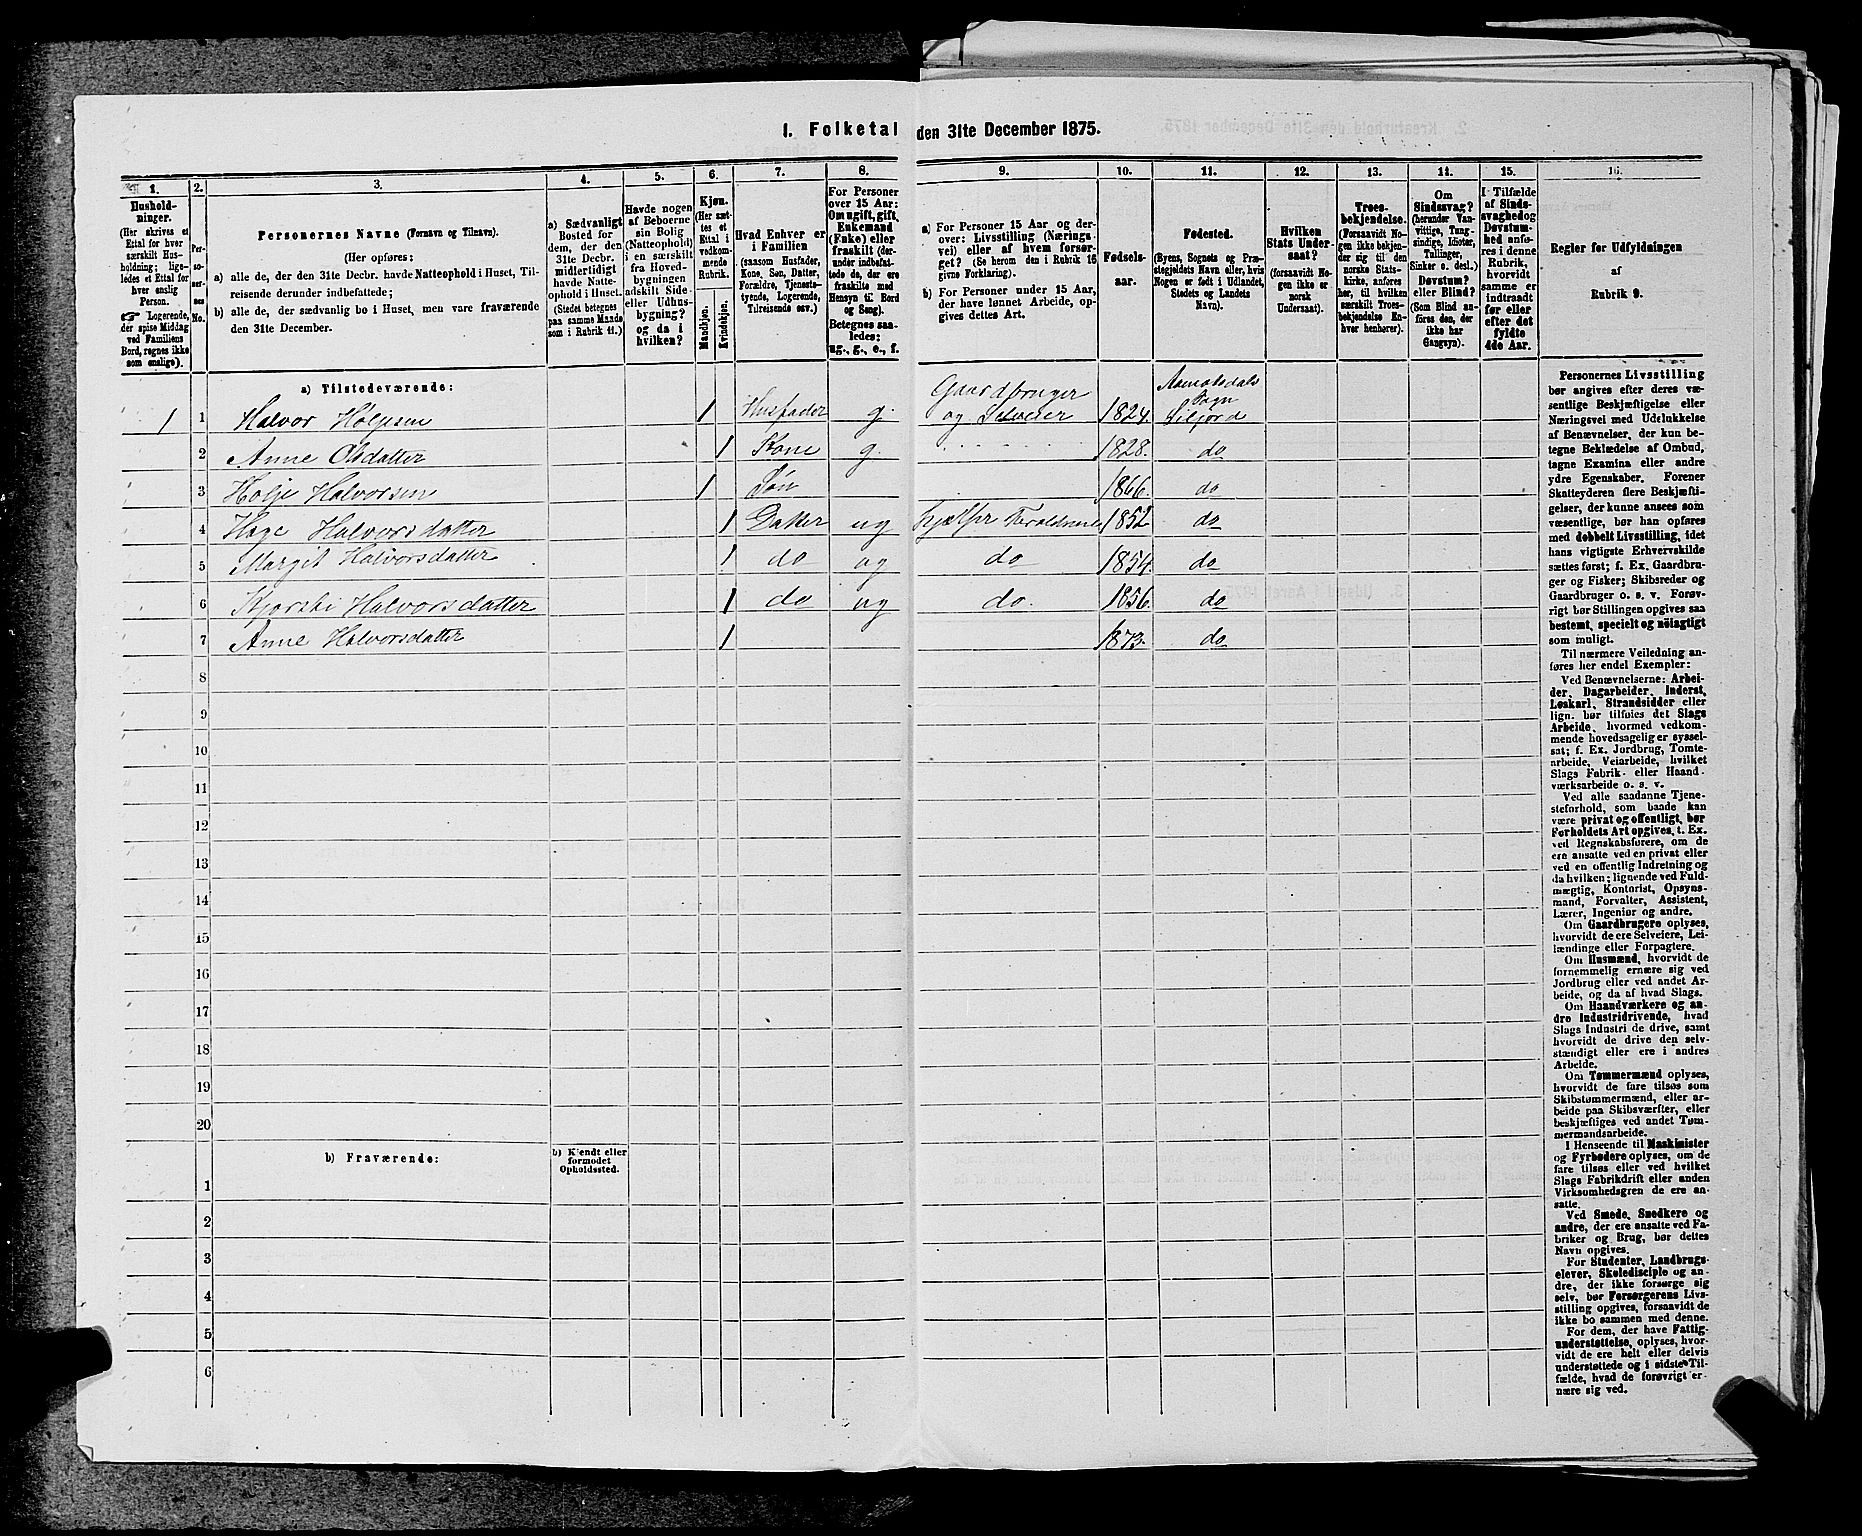 I. Folketal den 31te December 1875.
1. 2. 3. 4. 5. 6. 7. 8. 9. 10. 11. 12. 13. 14. 15. 16.
Husholdninger.
(Her skrives et
Ettal for hver
særskilt Husholdning;
ligeledes et Ettal for
hver enslig
Person.
☞ Logerende,
der spise Middag
ved Familiens
Bord, regnes ikke
som enslige).
Personernes No.
Personernes Navne (Fornavn og Tilnavn).
(Her opføres:
a) alle de, der den 31te Decbr. havde Natteophold i Huset, Tilreisende derunder indbefattede;
b) alle de, der sædvanlig bo i Huset, men vare fraværende
den 31te December.
a) Sædvanligt
Bosted for
dem, der den
31te Decbr.
midlertidigt
havde Natteophold i Huset.
(Stedet betegnes
paa samme Maade
som i Rubrik 11.)
Havde nogen
af Beboerne
sin Bolig
(Natteophold)
i en særskilt
fra Hovedbygningen
adskilt Side-
eller Udhusbygning?
og da i
hvilken?
Kjøn.
(Her sættes et
Ettal i
vedkommende
Rubrik.
Mandkjøn.
Kvindekjøn.
Hvad Enhver er
i Familien
(saasom Husfader,
Kone, Søn, Datter,
Forældre, Tjenestetyende, Logerende,
Tilreisende osv.)
For Personer
over 15 Aar:
Om ugift, gift,
Enkemand
(Enke) eller
fraskilt (derunder indbefattede de, der ere
fraskilte med
Hensyn til Bord
og Seng).
Betegnes saaledes:
ug., g., e., f.
a) For Personer 15 Aar og derover: Livsstilling (Næringsvei) eller af hvem forsørget? (Se herom den i Rubrik 16
givne Forklaring).
b) For Personer under 15 Aar,
der have lønnet Arbeide, opgives dettes Art.
Fødselsaar.
Fødested.
(Byens, Sognets og Præstegjeldets Navn eller, hvis
Nogen er født i Udlandet,
Stedets og Landets
Navn).
Hvilken
Stats Undersaat?
(forsaavidt Nogen ikke er
norsk
Undersaat).
Troesbekjendelse.
(Forsaavidt Nogen ikke bekjender sig til den
norske Statskirke, anføres
her, til hvilken
særskilt Troesbekjendelse Enhver henhører).
Om
Sindssvag?
(herunder Vanvittige, Tungsindige, Idioter,
Tullinger,
Sinker o. desl.)
Døvstum?
eller Blind?
(Som Blind anføres den, der
ikke har
Gangsyn).
I Tilfælde
af Sindssvaghed og
Døvstumhed anføres i denne
Rubrik,
hvorvidt
samme er
indtraadt
før eller
efter det
fyldte
4de Aar.
Regler for Udfyldningen
af
Rubrik 9.
a) Tilstedeværende:
1 1 Halvor Holjesen 1 Husfader g. Gaardbruger og Selveier 1824. Aamotsdals Sogn Siljord
2 Anne Olsdatter 1 Kone g. 1828. do
3 Holje Halvorsen 1 Søn 1866. do
4 Hage Halvorsdatter 1 Datter ug hjælper Forældrene 1852 do
5 Margit Halvorsdatter 1 do ug do 1854. do
6 Kjorsti Halvorsdatter 1 do ug do. 1856. do
7 Anne Halvorsdatter 1 1873. do
8
9
10
11
12
13
14
15
16
17
18
19
20
b) Fraværende:
b) Kjendt eller
formodet
Opholdssted.
1
2
3
4
5
6
Personernes Livsstilling
bør angives efter deres væsentlige Beskjæftigelse eller
Næringsvei med Udelukkelse
af Benævnelser, der kun betegne Beklædelse af Ombud,
tagne Examina eller andre
ydre Egenskaber. Forener
Skatteyderen flere Beskjæftigelser, der kunne ansees som
væsentlige, bør han opføres
med dobbelt Livsstilling, idet
hans vigtigste Erhvervskilde
sættes først; f. Ex. Gaardbruger og Fisker; Skibsreder og
Gaardbruger o. s. v. Forøvrigt bør Stillingen opgives saa
bestemt, specielt og nöiagtigt
som muligt.
Til nærmere Veiledning anføres her endel Exempler:
Ved Benævnelserne: Arbeider, Dagarbeider, Inderst,
Løskarl, Strandsidder eller
lign. bør tilføies det Slags
Arbeide, hvormed vedkommende hovedsagelig er sysselsat; f. Ex. Jordbrug, Tomtearbeide, Veiarbeide, hvilket
Slags Fabrik- eller Haandværksarbeide o. s. v.
Ved alle saadanne Tjenesteforhold, som baade kan
være privat og offentligt, bør
Forholdets Art opgives, t. Ex.
ved Regnskabsførere, om de
ere ansatte ved en privat eller
ved en offentlig Indretning og
da hvilken; lignende ved Fuldmægtig, Kontorist, Opsynsmand, Forvalter, Assistent,
Lærer, Ingeniør og andre.
Om Gaardbrugere oplyses,
hvorvidt de ere Selveiere, Leilændinge eller Forpagtere.
Om Husmænd, hvorvidt de
fornemmelig ernære sig ved
Jordbrug eller ved andet Arbeide, og da af hvad Slags.
Om Haandværkere og andre Industridrivende, hvad
Slags Industri de drive, samt
hvorvidt de drive den selvstændigt eller ere i andres
Arbeide.
Om Tømmermænd oplyses,
hvorvidt de fare tilsøs som
Skibstømmermænd, eller arbeide paa Skibsværfter, eller
beskjæftiges ved andet Tømmermandsarbeide.
I Henseende til Maskinister
og Fyrbødere oplyses, om de
fare tilsøs eller ved hvilket
Slags Fabrikdrift eller anden
Virksomhedsgren de ere ansatte.
Ved Smede, Snedkere og
andre, der ere ansatte ved Fabriker og Brug, bør dettes
Navn opgives.
For Studenter, Landbrugselever, Skoledisciple og andre, der ikke forsørge sig
selv, bør Forsørgerens Livsstilling opgives, forsaavidt de
ikke bo sammen med denne.
For dem, der have Fattigunderstøttelse, oplyses, hvorvidt de ere helt eller delvis
understøttede og i sidste Tilfælde, hvad de forøvrigt ernære sig ved.